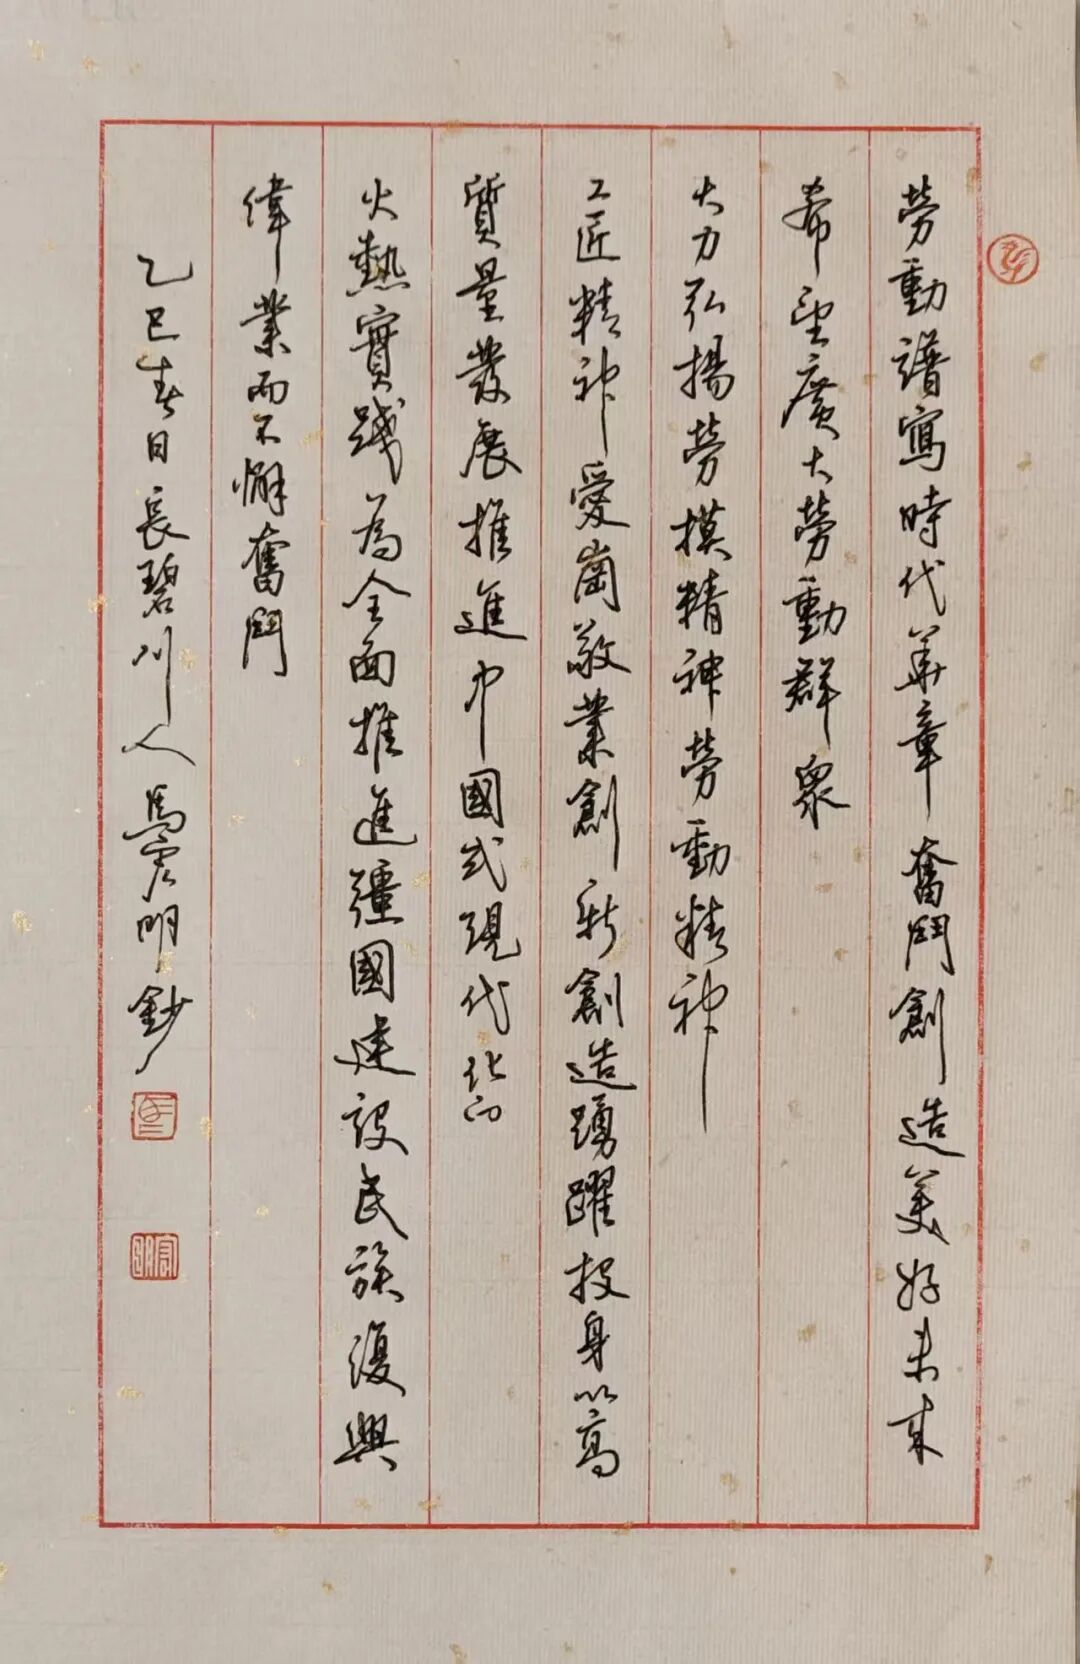 勞動譜寫時代華章奮鬥創造美好未來
希望廣大勞動群眾
大力弘揚勞模精神勞動精神
工匠精神愛崗敬業創新創造踴躍投身以高
質量發展推進中國式現代化的
火熱實踐為全面推進疆國建設民族復興
偉業而不懈奮鬥
乙巳春日長碧川人馬宏明鈔